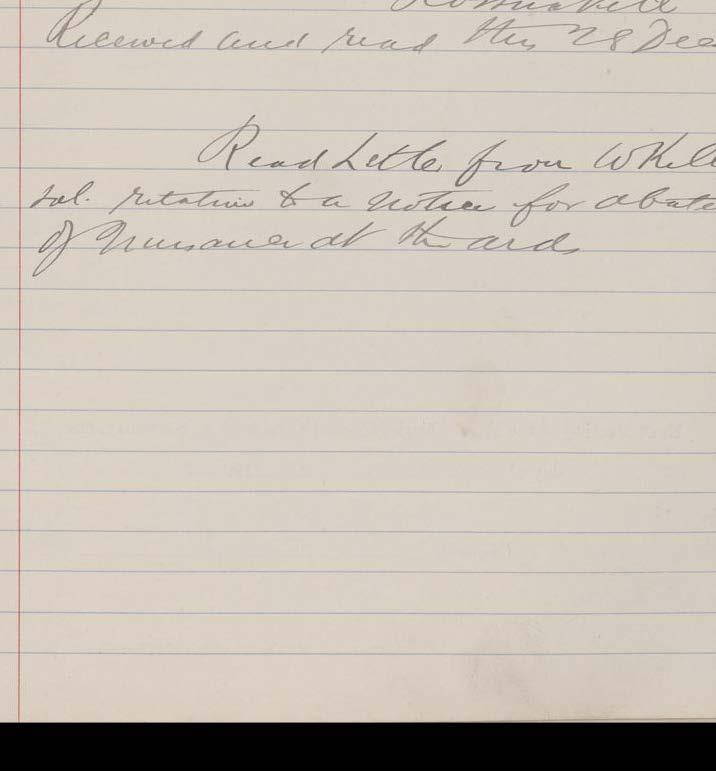 Received and read this 28 Dec
Read Letter from W Kell
sol. relative to a notice for abate
of nuisance at the ards